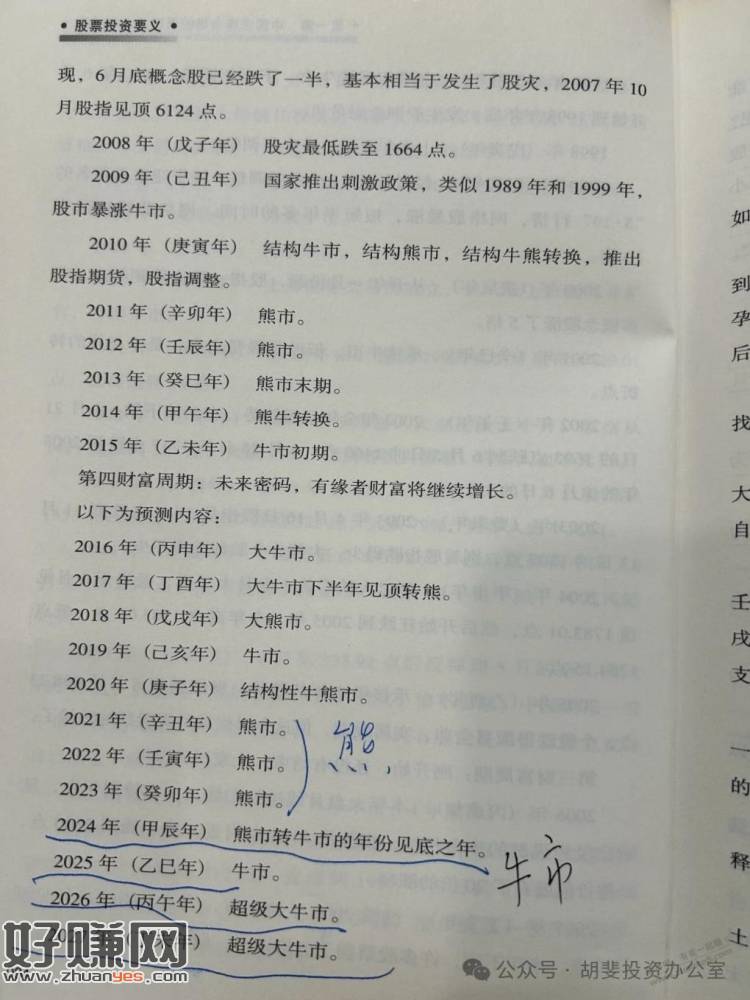 • 股票投资要义 •
现，6 月底概念股已经跌了一半，基本相当于发生了股灾，2007 年 10
月股指见顶 6124 点。
2008 年（戊子年） 股灾最低跌至 1664 点。
2009 年（己丑年） 国家推出刺激政策，类似 1989 年和 1999 年，
股市暴涨牛市。
2010 年（庚寅年） 结构牛市，结构熊市，结构牛熊转换，推出
股指期货，股指调整。
2011 年（辛卯年） 熊市。
2012 年（壬辰年） 熊市。
2013 年（癸巳年） 熊市末期。
2014 年（甲午年） 熊牛转换。
2015 年（乙未年） 牛市初期。
第四财富周期：未来密码，有缘者财富将继续增长。
以下为预测内容：
2016 年（丙申年） 大牛市。
2017 年（丁酉年） 大牛市下半年见顶转熊。
2018 年（戊戌年） 大熊市。
2019 年（己亥年） 牛市。
2020 年（庚子年） 结构性牛熊市。
2021 年（辛丑年） 熊市。
2022 年（壬寅年） 熊市。
2023 年（癸卯年） 熊市。
熊
2024 年（甲辰年） 熊市转牛市的年份见底之年。
2025 年（乙巳年） 牛市。
2026 年（丙午年） 超级大牛市。
未年） 超级大牛市。
牛市
如
到
孕
后
找
大
自
壬
戌
支
一
的
释
土
好赚网
www.zhuanyes.com
公众号 · 胡斐投资办公室